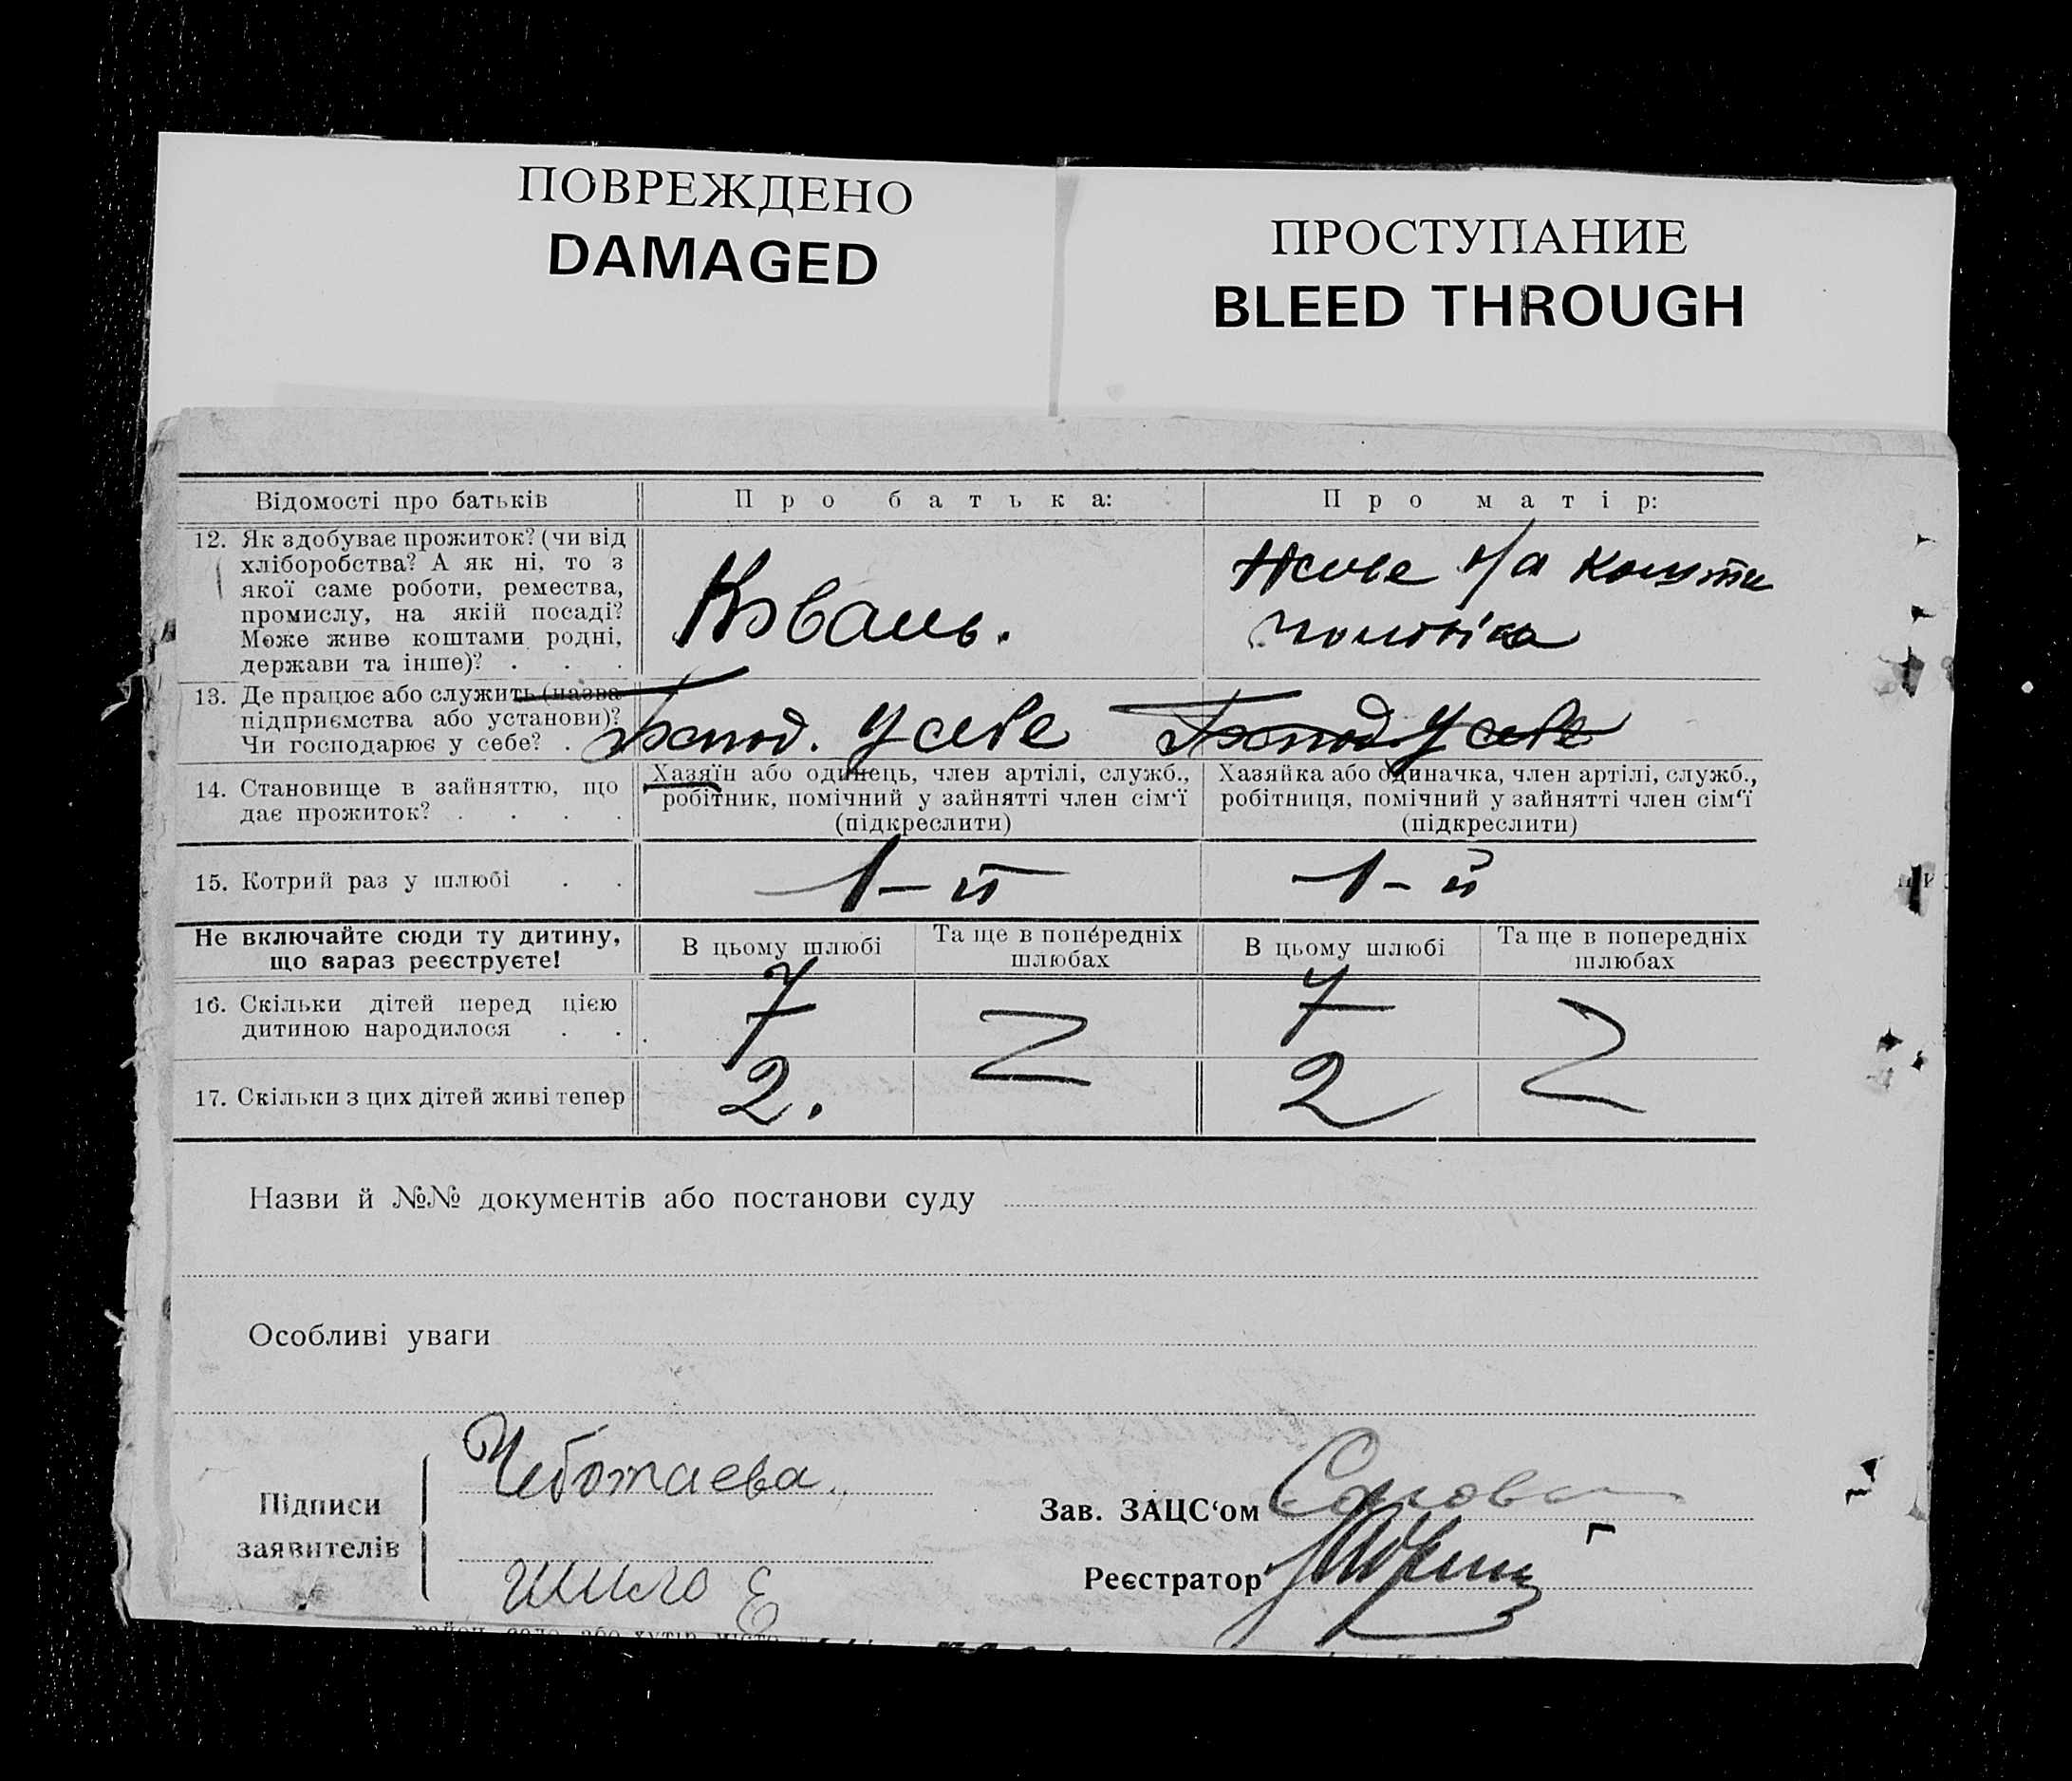 ПОВРЕЖДЕНО
DAMAGED
ПРОСТУПАНИЕ
BLEED THROUGH
Відомості про батьків
Про батька:
Про матір:
12. Як здобуває прожиток? (чи від
хліборобства? А як ні, то з
якої саме роботи, ремества,
промислу, на якій посаді?
Може живе коштами родні,
держави та інше)? . . .
Коваль.
Живе на кошти
чоловіка
13. Де працює або служить (назва
підприємства або установи)?
Чи господарює у себе? .
Господ. у себе
Господ у себе
14. Становище в зайняттю, що
дає прожиток? . . . .
Хазяїн або одинець, член артілі, служб.,
робітник, помічний у зайнятті член сім‘ї
(підкреслити)
Хазяйка або одиначка, член артілі, служб.,
робітниця, помічний у зайнятті член сім‘ї
(підкреслити)
15. Котрий раз у шлюбі . .
1-й
1-й
Не включайте сюди ту дитину,
що зараз реєструєте!
В цьому шлюбі
Та ще в попередніх
шлюбах
В цьому шлюбі
Та ще в попередніх
шлюбах
16. Скільки дітей перед цією
дитиною народилося . .
7
7
17. Скільки з цих дітей живі тепер
2.
2
Назви й №№ документів або постанови суду
Особливі уваги
Підписи
заявителів
Чеботаева.
Шило Е
Зав. ЗАЦС‘ом
Реєстратор
район, село або хутір, місто